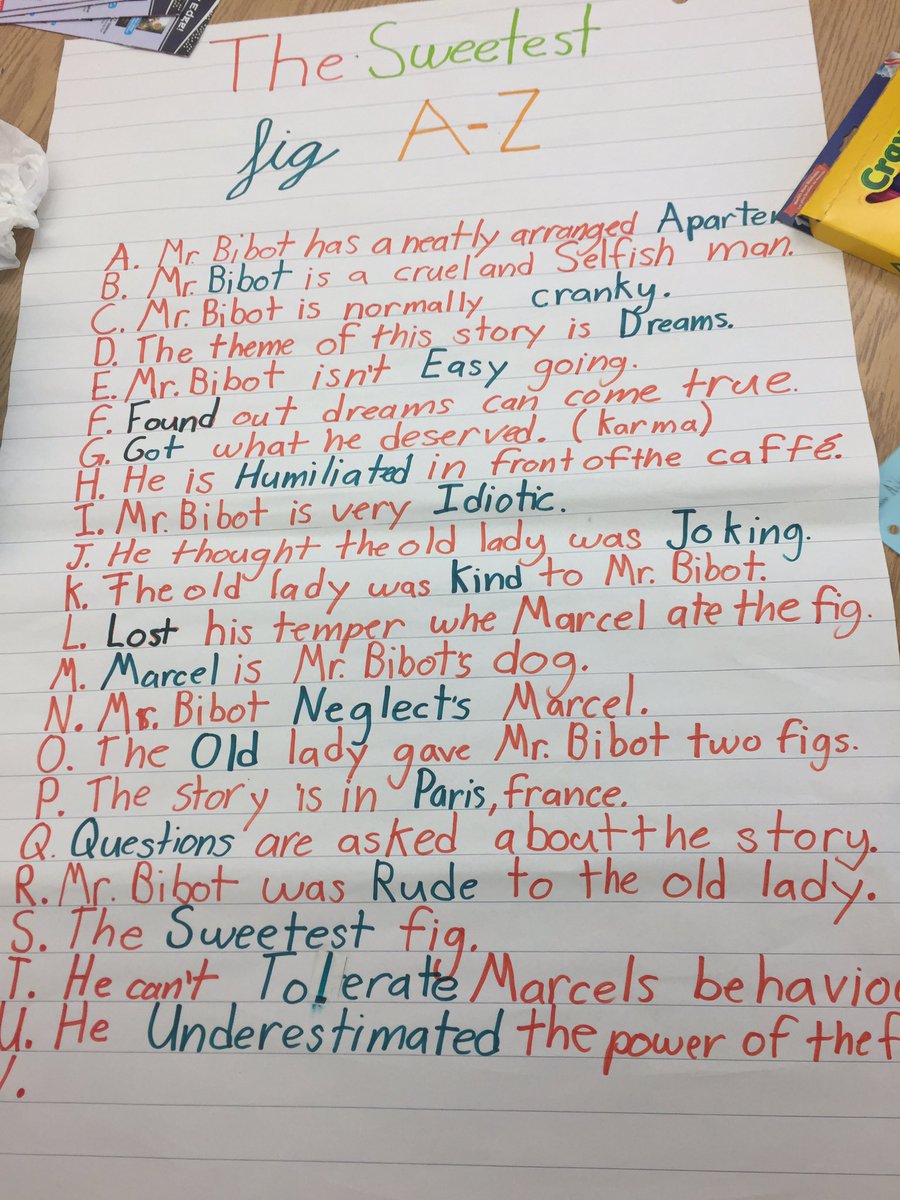 The Sweetest
fig A-Z
A. Mr. Bibot has a neatly arranged Aparte
B. Mr. Bibot is a cruel and Selfish man.
C. Mr. Bibot is normally cranky.
D. The theme of this story is Dreams.
E. Mr. Bibot isn't Easy going.
F. Found out dreams can come true.
G. Got what he deserved. (karma)
H. He is Humiliated in front of the caffé.
I. Mr. Bibot is very Idiotic.
J. He thought the old lady was Joking.
K. The old lady was kind to Mr. Bibot.
L. Lost his temper whe Marcel ate the fig.
M. Marcel is Mr. Bibot's dog.
N. Mr. Bibot Neglect's Marcel.
O. The Old lady gave Mr. Bibot two figs.
P. The story is in Paris, france.
Q. Questions are asked about the story.
R. Mr. Bibot was Rude to the old lady.
S. The Sweetest fig.
T. He can't Tolerate Marcels behavio
U. He Underestimated the power of the f
Cray